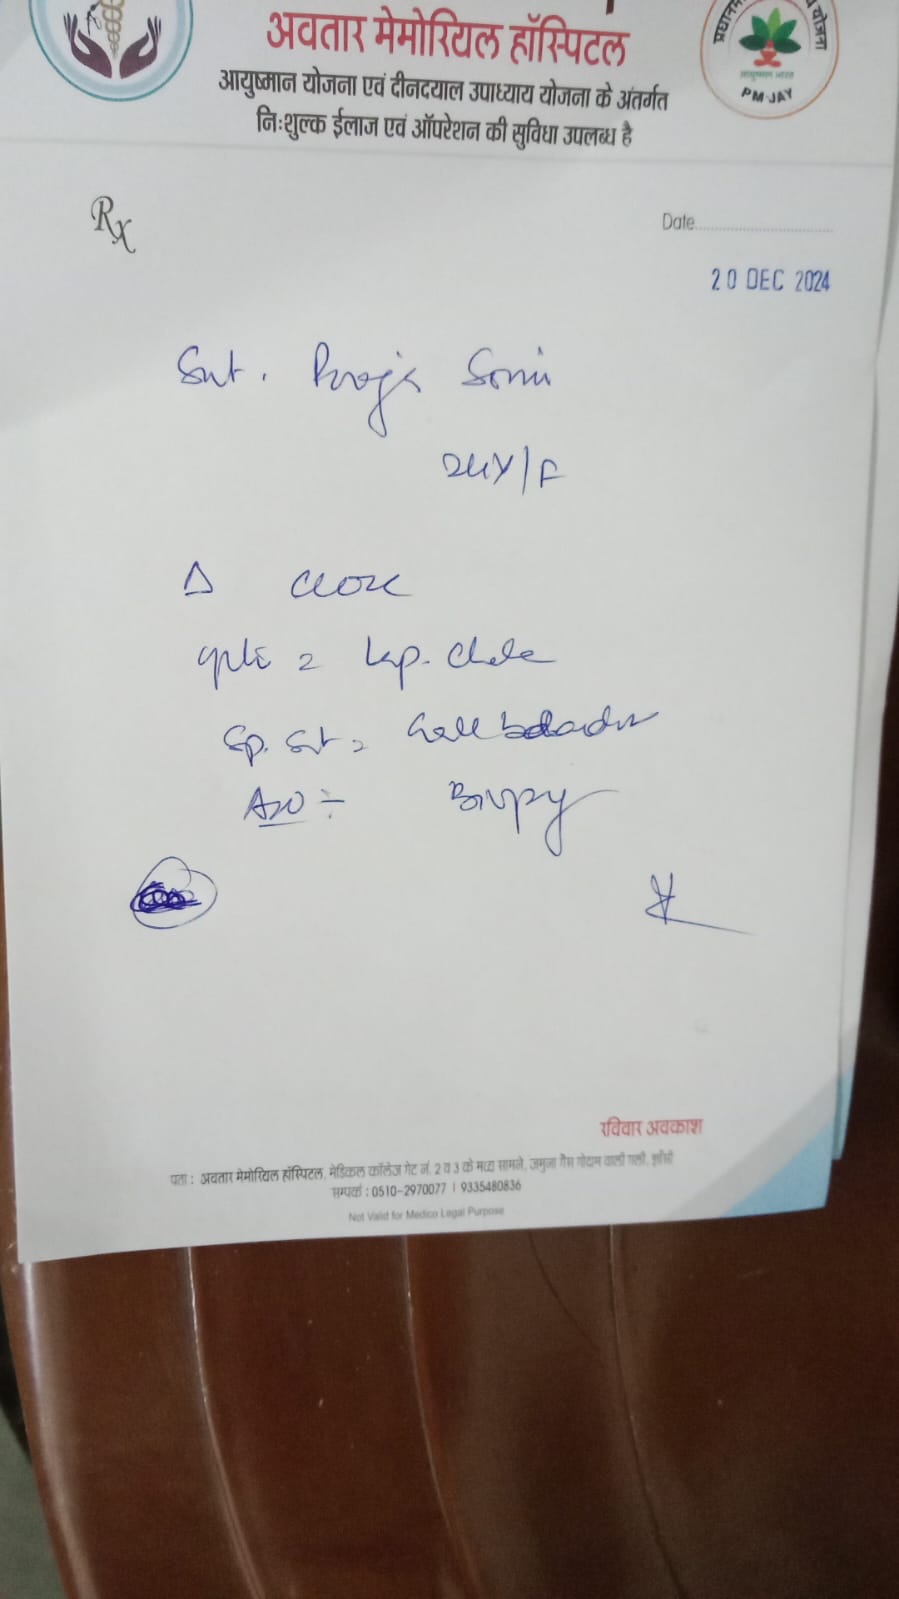 अवतार मेमोरियल हॉस्पिटल
आयुष्मान योजना एवं दीनदयाल उपाध्याय योजना के अंतर्गत
निःशुल्क ईलाज एवं ऑपरेशन की सुविधा उपलब्ध है
आयुष्मान भारत
PM-JAY
Rx
Date
20 DEC 2024
Smt. Pooja Soni
24Y/F
Δ
Lap. Chole
Sp. Snt = Gall bladder
Adv ÷ Biopsy
रविवार अवकाश
पता : अवतार मेमोरियल हॉस्पिटल, मेडिकल कॉलेज गेट नं. 2 व 3 के मध्य सामने, जमुना गैस गोदाम वाली गली, झाँसी
सम्पर्क : 0510-2970077 | 9335480836
Not Valid for Medico Legal Purpose